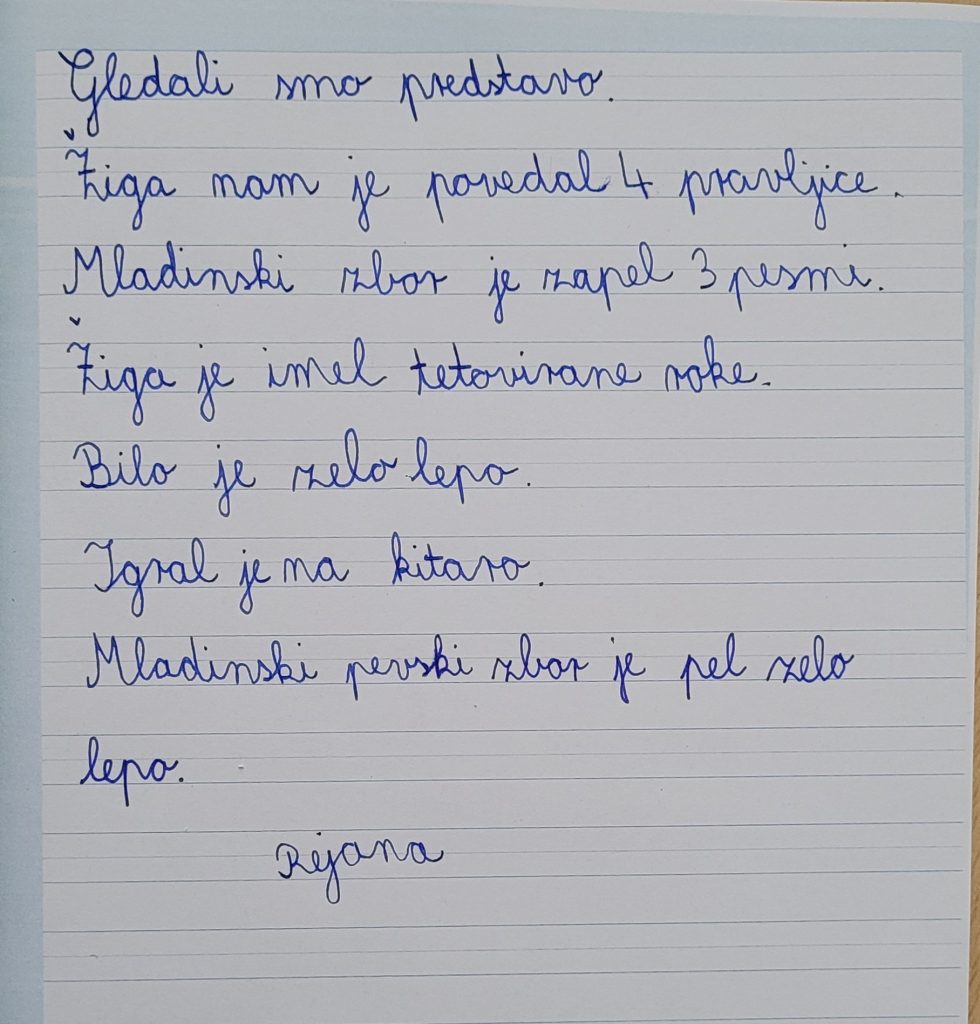 Gledali smo predstavo.
Žiga nam je povedal 4 pravljice.
Mladinski zbor je zapel 3 pesmi.
Žiga je imel tetovirane roke.
Bilo je zelo lepo.
Igral je na kitaro.
Mladinski pevski zbor je pel zelo
lepo.
Rejana